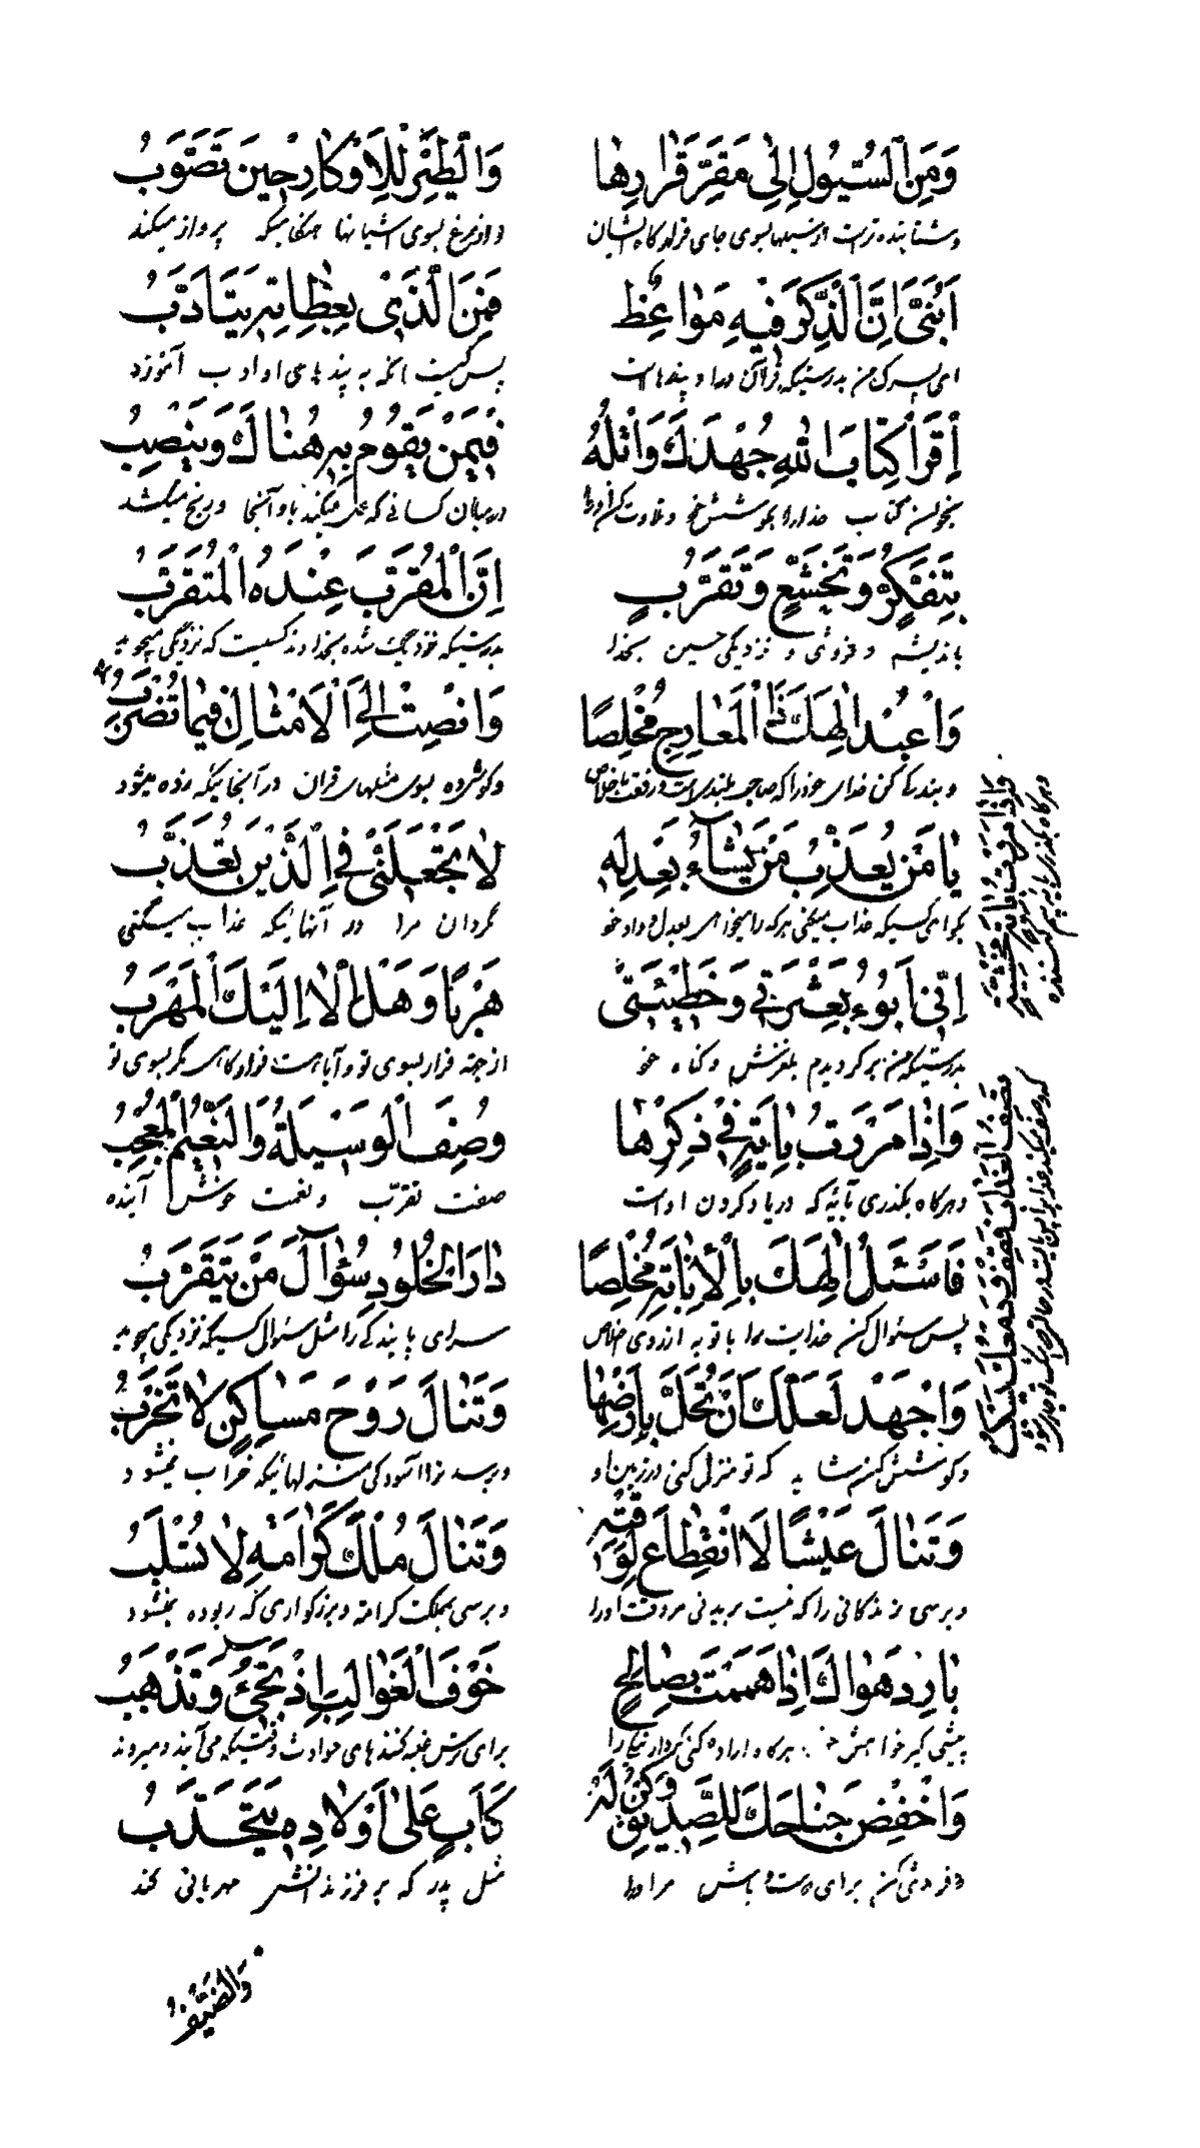 وَمِنَ السُّيُولِ اِلٰی مَقَرِّ قَرَارِهَا وَالطَّيْرِ لِلْاَوْكَارِ حِينَ تَصَوَّبُ
وشتابنده تر است از سیلها بسوی جای قرارگاه ایشان واز مرغ بسوی آشیانها هنگامیکه پرواز میکند
اَبُنَيَّ اِنَّ الذِّكْرَ فِيهِ مَوَاعِظٌ فَمَنِ الَّذِی بِعِظَاتِهِ يَتَاَدَّبُ
ای پسرک من بدرستیکه قرآن در او پندهاست پس کیست آنکه به پندهای او ادب آموزد
اِقْرَأْ كِتَابَ اللهِ جُهْدَكَ وَاتْلُهُ فِيمَنْ يَقُومُ بِهِ هُنَاكَ وَيَنْصِبُ
بخوان کتاب خدارا بکوشش خود وتلاوت کن اورا در میان کسانی که عمل میکنند باو آنجا ورنج میکشند
بِتَفَكُّرٍ وَتَخَشُّعٍ وَتَقَرُّبٍ اِنَّ الْمُقَرَّبَ عِنْدَهُ الْمُتَقَرِّبُ
باندیشه وفروتنی و نزدیکی جستن بخدا بدرستیکه نزدیک شده بخداوند کسیست که نزدیکی میجوید
وَاعْبُدْ اِلٰهَكَ ذَا الْمَعَارِجِ مُخْلِصًا وَانْصِتْ اِلَی الْاَمْثَالِ فِيمَا تُضْرَبُ
وبندگی کن خدای خود را که صاحب بلندیهاست ورفعت باخلاص وگوش ده بسوی مثلهای قران در آنجائیکه زده میشود
وَاِذَا مَرَرْتَ بِآيَةٍ مَخْشِيَّةٍ
وهرگاه بگذری بآیه بیم کننده
يَا مَنْ يُعَذِّبُ مَنْ يَشَاءُ بِعَدْلِهِ لَا تَجْعَلَنِّی فِی الَّذِينَ تُعَذِّبُ
بگو ای کسیکه عذاب میکنی هرکه را میخواهی بعدل وداد خود مگردان مرا در آنهائیکه عذاب میکنی
اِنِّی اَبُوءُ بِعَثْرَتِی وَخَطِيئَتِی هَرَبًا وَهَلْ اِلَّا اِلَيْكَ الْمَهْرَبُ
بدرستیکه من برگردیدم بلغزش وگناه خود از جهة فرار بسوی تو وآیا هست فرارگاهی مگر بسوی تو
وَاِذَا مَرَرْتَ بِآيَةٍ فِی ذِكْرِهَا وَصْفُ الْوَسِيلَةِ وَالنَّعِيمِ الْمُعْجِبُ
وهرگاه بگذری بآیهٔ که دریاد کردن اوست صفت تقرّب ونعمت خوش آینده
تَصِفُ الْعَذَابَ فَقِفْ وَدَمْعُكَ يُسْكَبُ
فَاسْئَلْ اِلٰهَكَ بِالْاِنَابَةِ مُخْلِصًا دَارَ الْخُلُودِ سُؤَالَ مَنْ يَتَقَرَّبُ
پس سئوال کن خدایت را با توبه از روی خلاص سرای پایندگی را مثل سئوال کسیکه نزدیکی میجوید
وَاجْهَدْ لَعَلَّكَ اَنْ تَحُلَّ بِاَرْضِهَا وَتَنَالَ رَوْحَ مَسَاكِنٍ لَا تَخْرُبُ
وکوشش کن شاید که تو منزل کنی در زمین او وبرسد ترا آسودگی منزلهائیکه خراب نمیشود
وَتَنَالَ عَيْشًا لَا انْقِطَاعَ لِوَقْتِهِ وَتَنَالَ مُلْكَ كَرَامَةٍ لَا تُسْلَبُ
وبرسی زندگانی را که نیست بریدنی مروقت اورا وبرسی بملک کرامة وبزرگواری که ربوده نمیشود
بَادِرْ هَوَاكَ اِذَا هَمَمْتَ بِصَالِحٍ خَوْفَ الْغَوَالِبِ اِذْ تَجِیءُ وَتَذْهَبُ
پیشی گیر خواهش خود هرگاه اراده کنی کردار نیک را برای ترس غلبه کنندهای حوادث وقتیکه می آیند ومیروند
وَاخْفِضْ جَنَاحَكَ لِلصَّدِيقِ وَكُنْ لَهُ كَاَبٍ عَلٰی اَوْلَادِهِ يَتَحَدَّبُ
وفروتنی کن برای دوست وباش مر اورا مثل پدر که بر فرزندانش مهربانی کند
وَالضَّيْفَ